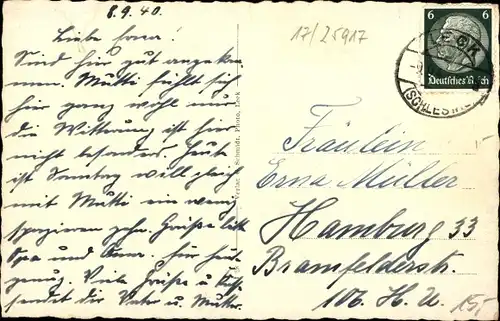 8.9.40.
Liebe Erna!
Sind hier gut angekom-
men. Mutti fühlt sich
hier ganz wohl nur
die Witterung ist hier
nicht besonders. Heute
ist Sonntag will gleich
mit Mutti ein wenig
spazieren gehn. Grüße bitte
Opa und Oma. Für heute
genug. Viele Grüße u. Küsse
sendet dir Vater u. Mutter.
17/25917
6 6
Deutsches Reich
LECK
(SCHLESWIG)
Schmidt, Photo, Leck
Fräulein
Erna Müller
Hamburg 33
Bramfelderstr.
106. H. U.
15,-